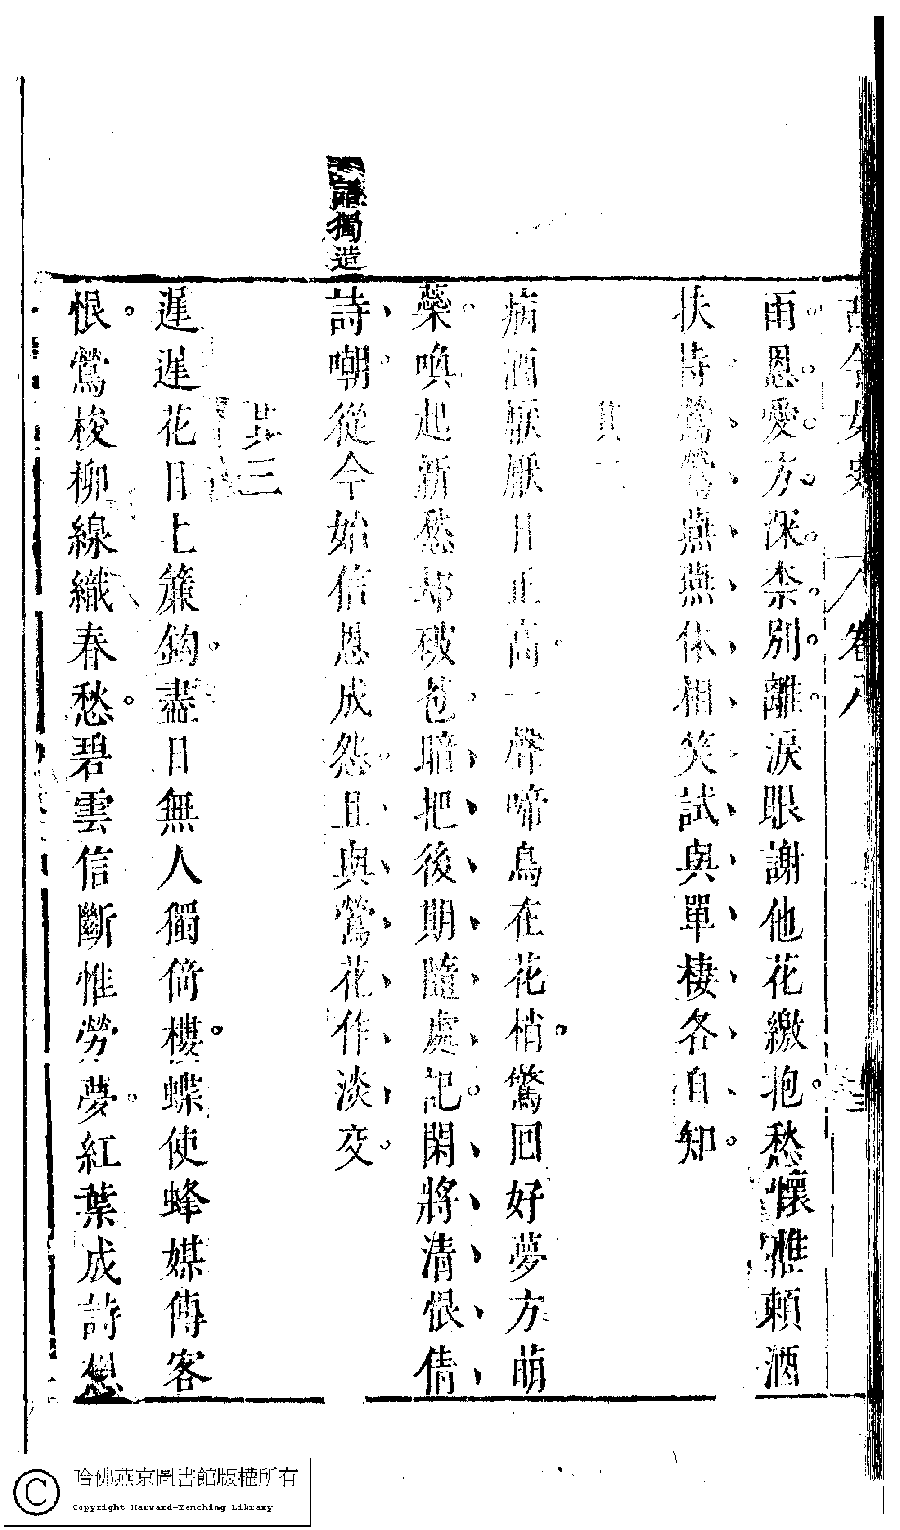 古今女史 卷八
雨恩愛方深柰別離淚眼謝他花繳抱愁懷惟賴酒
扶持鶯鶯燕燕休相笑試與單棲各自知
其二
病酒厭厭日正高一聲啼鳥在花梢驚回好夢方萌
蘂喚起新愁却破苞暗把後期隨處記閑將清恨倩
詩嘲從今始信恩成怨且與鶯花作淡交
語獨造
其三
遲遲花日上簾鉤盡日無人獨倚樓蝶使蜂媒傳客
恨鶯梭柳線織春愁碧雲信斷惟勞夢紅葉成詩想
哈佛燕京圖書館版權所有
Copyright Harvard-Yenching Library